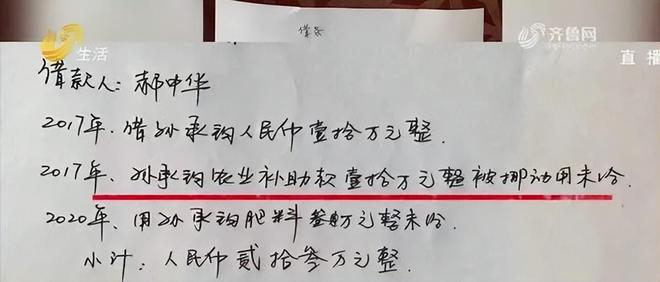 借条
生活
齐鲁网
直播
借款人：郝中华
2017年、借孙承钧人民币壹拾万元整.
2017年、孙承钧农业补助款壹拾万元整被挪动用未给.
2020年、用孙承钧肥料叁万元整未给.
小计：人民币贰拾叁万元整.